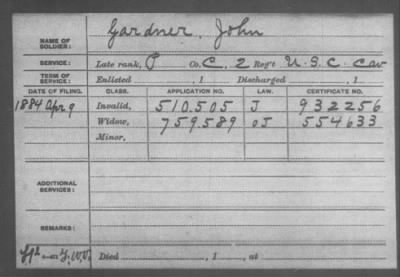 NAME OF SOLDIER: Gardner, John
SERVICE: Late rank, P Co. C, 2 Reg't U.S.C. Cav
TERM OF SERVICE: Enlisted , 1 Discharged , 1
DATE OF FILING. CLASS. APPLICATION NO. LAW. CERTIFICATE NO.
1884 Apr 9 Invalid, 510.505 J 932256
Widow, 759.589 OJ 554633
Minor,
ADDITIONAL SERVICES:
REMARKS:
Died , 1 , at